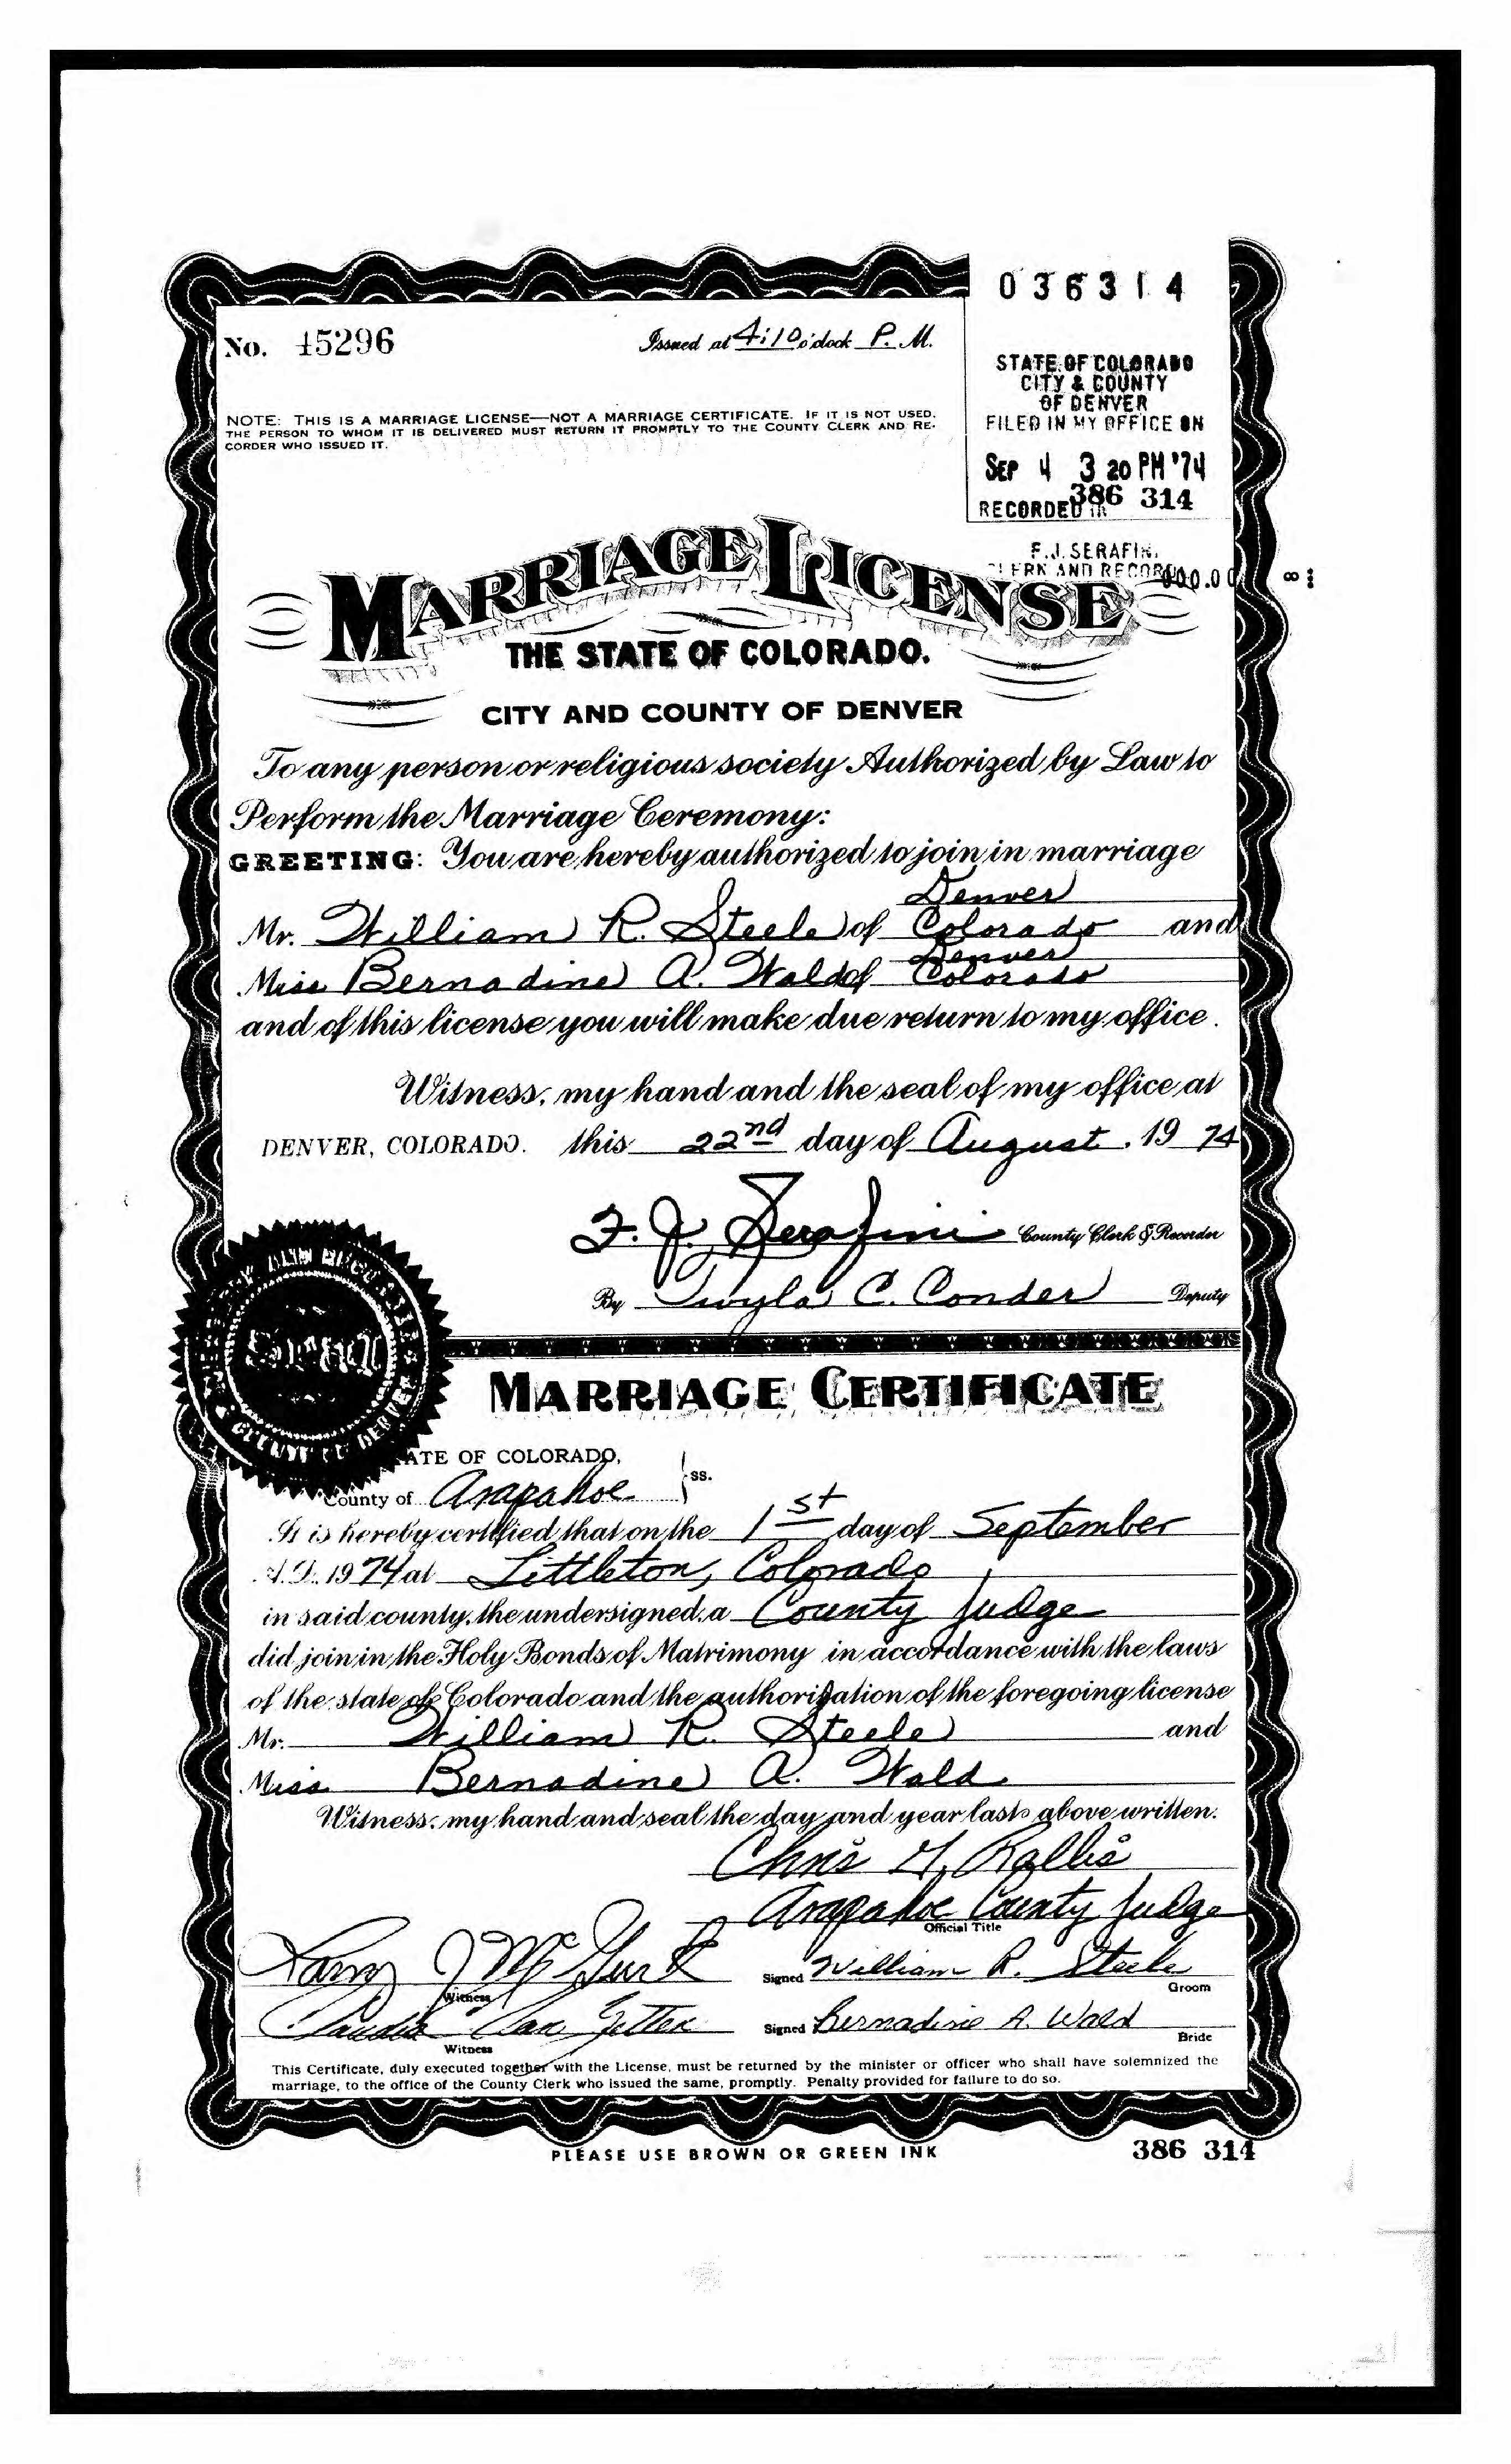 036314
No. 45296
Issued at 4:10 o'clock P. M.
STATE OF COLORADO
CITY & COUNTY
OF DENVER
FILED IN MY OFFICE ON
SEP 4 3 20 PM '74
RECORDED IN 386 314
F.J. SERAFINI
CLERK AND RECORDER
NOTE: THIS IS A MARRIAGE LICENSE—NOT A MARRIAGE CERTIFICATE. IF IT IS NOT USED,
THE PERSON TO WHOM IT IS DELIVERED MUST RETURN IT PROMPTLY TO THE COUNTY CLERK AND RE-
CORDER WHO ISSUED IT.
MARRIAGE LICENSE
THE STATE OF COLORADO.
CITY AND COUNTY OF DENVER
To any person or religious society Authorized by Law to
Perform the Marriage Ceremony:
GREETING: You are hereby authorized to join in marriage
Denver
Mr. William R. Steele of Colorado and
Denver
Miss Bernadine A. Wald of Colorado
and of this license you will make due return to my office.
Witness, my hand and the seal of my office at
DENVER, COLORADO. this 22nd day of August, 19 74
F. J. Serafini County Clerk & Recorder
By Twyla C. Conder Deputy
MARRIAGE CERTIFICATE
ATE OF COLORADO,
County of Arapahoe ss.
It is hereby certified that on the 1st day of September
A.D. 1974 at Littleton, Colorado
in said county, the undersigned, a County Judge
did join in the Holy Bonds of Matrimony in accordance with the laws
of the state of Colorado and the authorization of the foregoing license
Mr. William R. Steele and
Miss Bernadine A. Wald
Witness, my hand and seal the day and year last above written.
Chris G. Rallis
Arapahoe County Judge
Official Title
Larry J McGurk
Witness
Signed William R. Steele
Groom
Claudia Van Jetten
Witness
Signed Bernadine A. Wald
Bride
This Certificate, duly executed together with the License, must be returned by the minister or officer who shall have solemnized the
marriage, to the office of the County Clerk who issued the same, promptly. Penalty provided for failure to do so.
PLEASE USE BROWN OR GREEN INK
386 314